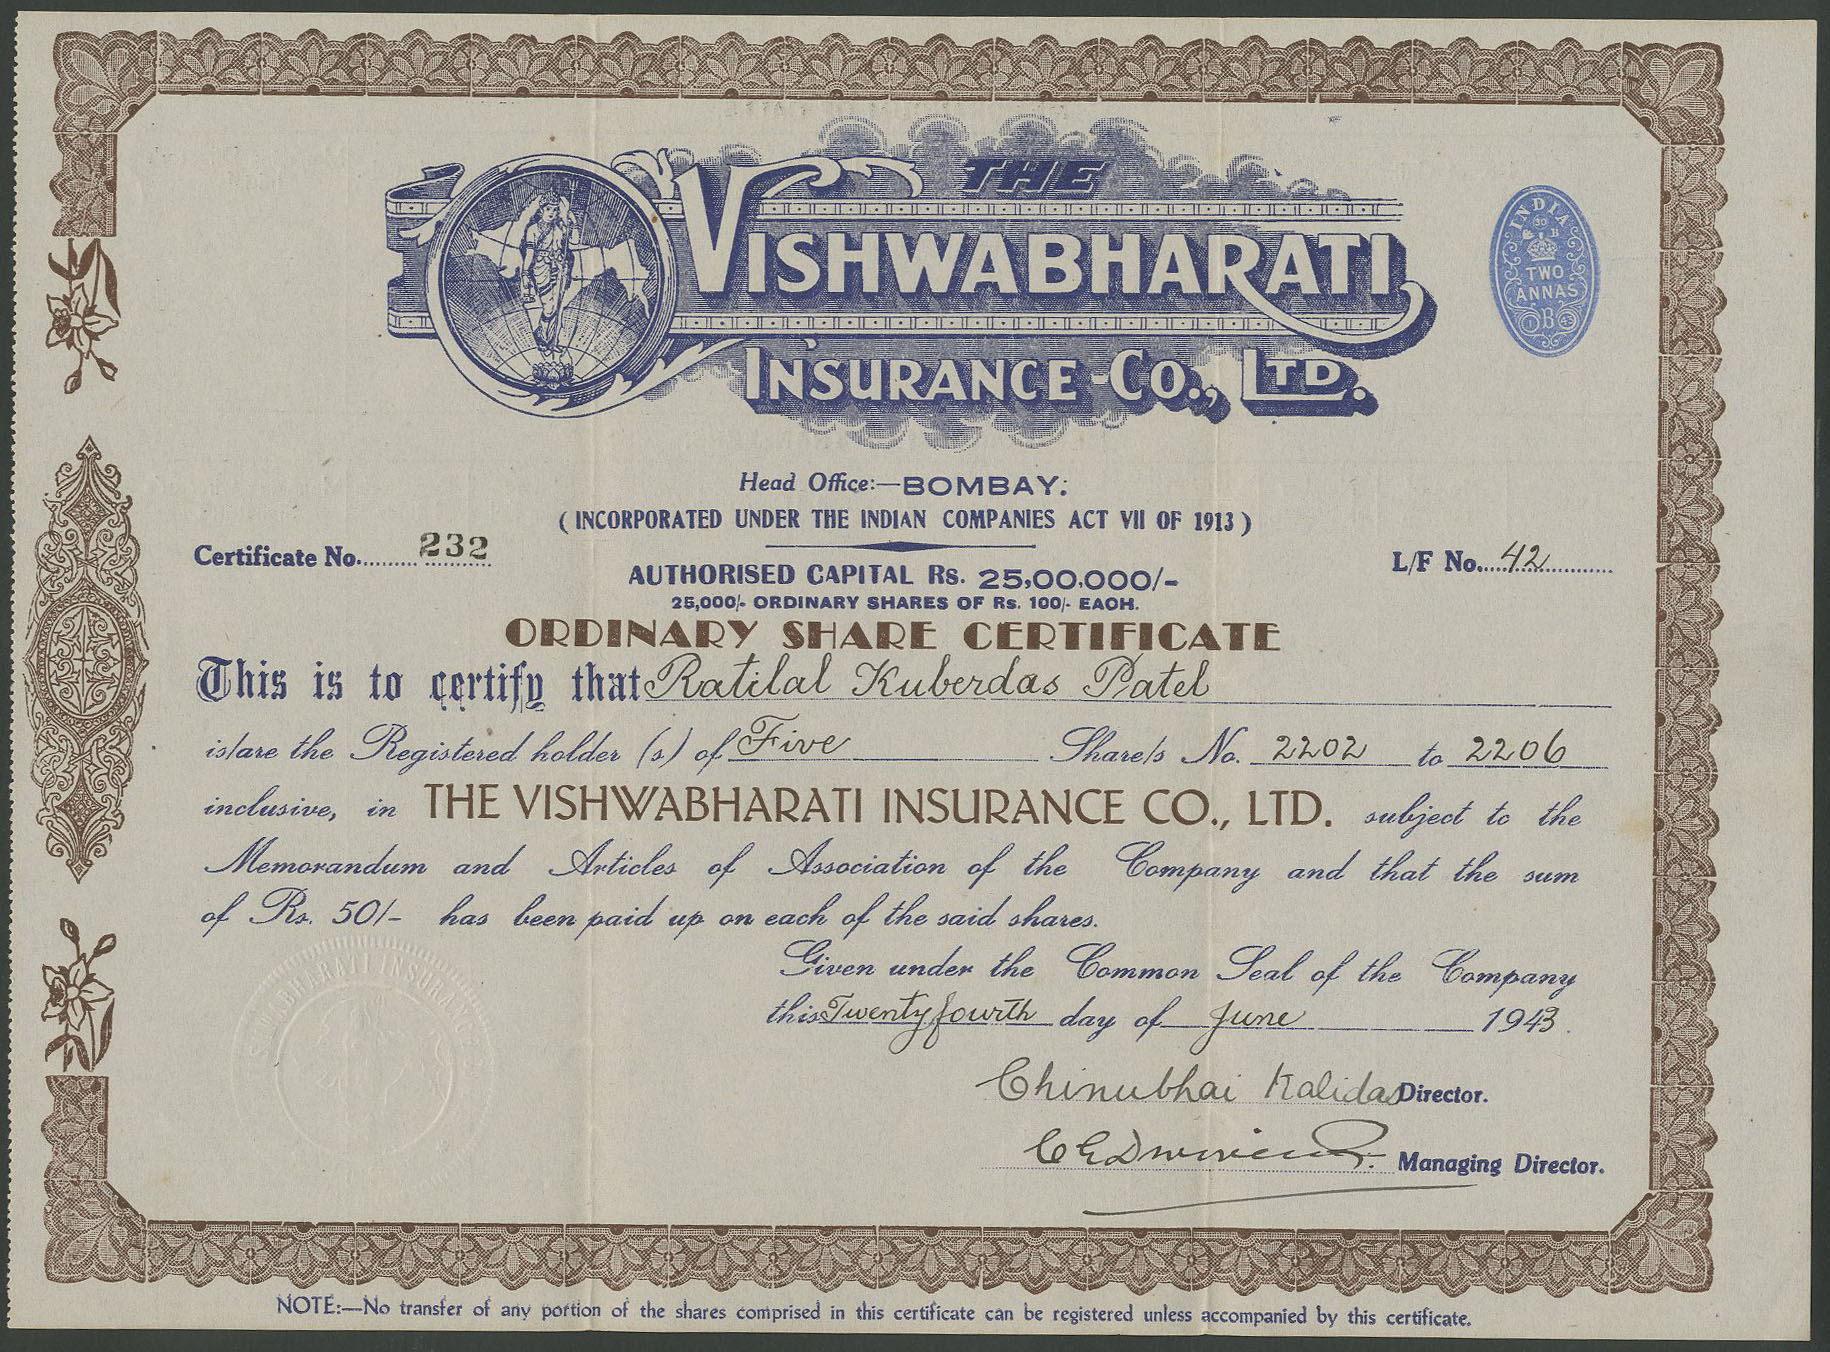 THE
VISHWABHARATI
INSURANCE - CO., LTD.
INDIA
TWO
ANNAS
B
Head Office:—BOMBAY.
(INCORPORATED UNDER THE INDIAN COMPANIES ACT VII OF 1913)
Certificate No. 232
L/F No. 42
AUTHORISED CAPITAL Rs. 25,00,000/-
25,000/- ORDINARY SHARES OF Rs. 100/- EACH.
ORDINARY SHARE CERTIFICATE
This is to certify that Ratilal Kuberdas Patel
is/are the Registered holder (s) of Five Share/s No. 2202 to 2206
inclusive, in THE VISHWABHARATI INSURANCE CO., LTD. subject to the
Memorandum and Articles of Association of the Company and that the sum
of Rs. 50/- has been paid up on each of the said shares.
Given under the Common Seal of the Company
this Twenty fourth day of June 1943.
Chinubhai Kalidas Director.
Managing Director.
NOTE:—No transfer of any portion of the shares comprised in this certificate can be registered unless accompanied by this certificate.